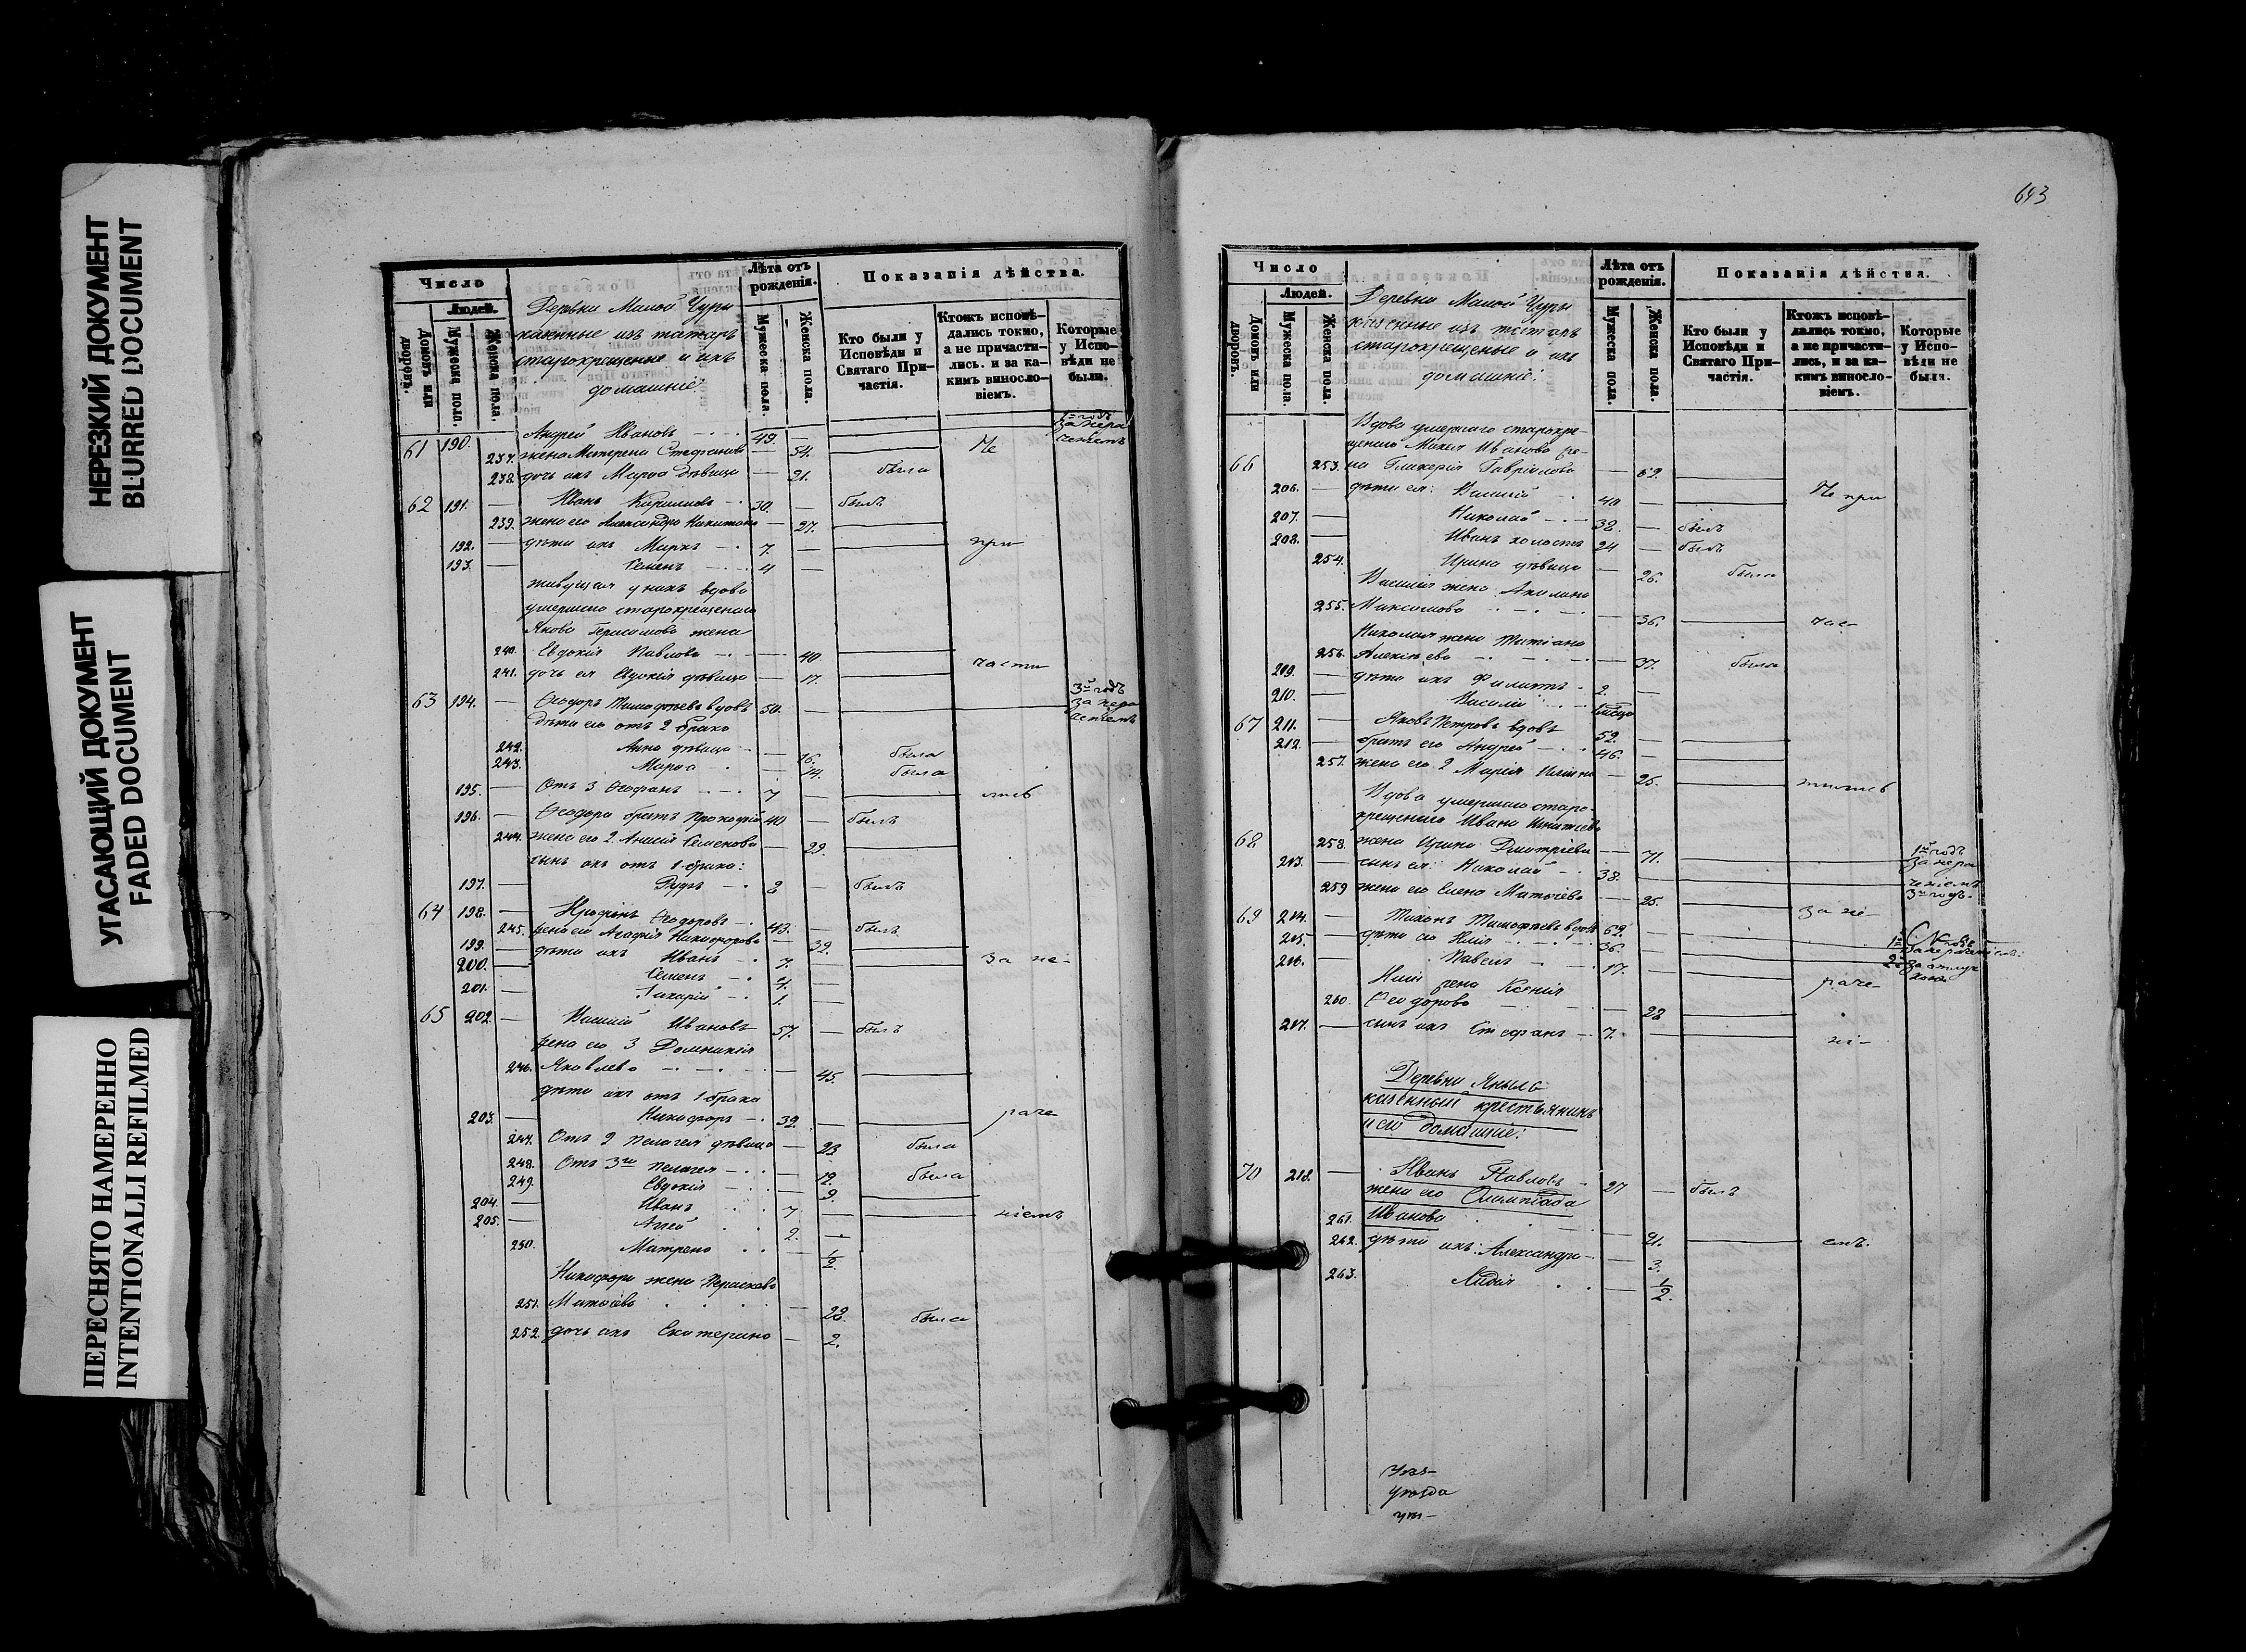 НЕРЕЗКИЙ ДОКУМЕНТ
BLURRED DOCUMENT
УГАСАЮЩИЙ ДОКУМЕНТ
FADED DOCUMENT
ПЕРЕСНЯТО НАМЕРЕННО
INTENTIONALLI REFILMED
Число
Людей.
Домовъ или дворовъ.
Мужеска пол.
Женска пола.
Деревни Малой Чуры
казенные изъ татаръ
старокрещеные и ихъ
домашніе:
Лѣта отъ рожденія.
Мужеска пола.
Женска пола.
Показанія дѣйства.
Кто были у Исповѣди и Святаго Причастія.
Ктожъ исповѣдались токмо, а не причастились. и за какимъ винословіемъ.
Которые у Исповѣди не были.
61 190. Андрей Ивановъ 49.
237. жена Матрена Стефанова 54. Не
238. дочь ихъ Марѳа дѣвица 21. была
62 191. Иванъ Кириловъ 30. былъ
239. жена его Александра Никитина 27.
192. дѣти ихъ Маркъ 7. при
193. Семенъ 4
живущая у нихъ вдова
умершаго старокрещенаго
Якова Герасимова жена
240. Евдокія Павлова 40
241. дочь ея Евдокія дѣвица 17. части
63 194. Ѳеодоръ Тимофѣевъ вдовъ 50. 3й годъ
Дѣти его отъ 2 брака
242. Анна дѣвица 16. была
243. Марѳа 14. была
195. Отъ 3 Ѳеофанъ 7 лись
196. Ѳеодора братъ Прокофій 40 былъ
244. жена его 2 Анисія Семенова 29.
сынъ ихъ отъ 1 брака:
197. 2 былъ
64 198. Ѳеодоровъ 43. былъ
245. жена его Агафія Никифорова 39.
199. дѣти ихъ Иванъ 7 за не-
200. Семенъ 4.
201. Захарій 1.
65 202. Василій Ивановъ 57. былъ
жена его 3 Домникія
246. Яковлева 45.
дѣти ихъ отъ 1 брака
203. Никифоръ 32. раче
247. Отъ 2 Пелагея дѣвица 23 была
248. Отъ 3го Пелагея была
249. Евдокія 9.
204. Иванъ 7 ніемъ
205. 2.
250. Матрена 1/2.
Никифора жена Параскева
251. была
252. дочь ихъ Екатерина 2.
643
Число
Людей.
Домовъ или дворовъ.
Мужеска пола.
Женска пола.
Деревни Малой Чуры
казенные изъ татаръ
старокрещеные и их
домашніе:
Лѣта отъ рожденія.
Мужеска пола.
Женска пола.
Показанія дѣйства.
Кто были у Исповѣди и Святаго Причастія.
Ктожъ исповѣдались токмо, а не причастились, и за какимъ винословіемъ.
Которые у Исповѣди не были.
Вдова умершаго старокре-
щенаго Ивanова же-
66 253. на Гликерія Гаврилова 62.
206. дѣти ея: Василій 40 Не при
207. Николай 38. былъ
208. Иванъ холостъ 24 былъ
254. Ирина дѣвица 26. была
Василія жена Акилина
255. Максимова 36. час-
Николая жена Татіана
256. Алексѣева 37. была
209. дѣти ихъ Филиппъ 2.
210. Василій
67 211. Яковъ Петровъ вдовъ 52.
212. братъ его Андрей 46.
257. жена его 2 Марія 25. тились
Вдова умершаго старо-
крещенаго Ивана Игнатьева
68 258. жена Ирина Дмитріева 71. 1й годъ
213. сынъ ея: Николай 38.
259 жена его Елена Матвѣева 25. за не-
69 214. Тихонъ Тимофѣевъ вдовъ 62.
215. дѣти его Илія 36.
216. Павелъ 17. раче-
Иліи жена Ксенія
260. Ѳеодорова 28
217. сынъ ихъ Стефанъ 7. ні-
Деревни Яныла
казенный крестьянинъ
и его домашніе:
70 218. Иванъ Павловъ 27 былъ
жена его Олимпіада
261. Иванова 21. емъ.
262. дѣти ихъ: Александра 3.
263. Лидія 1/2.